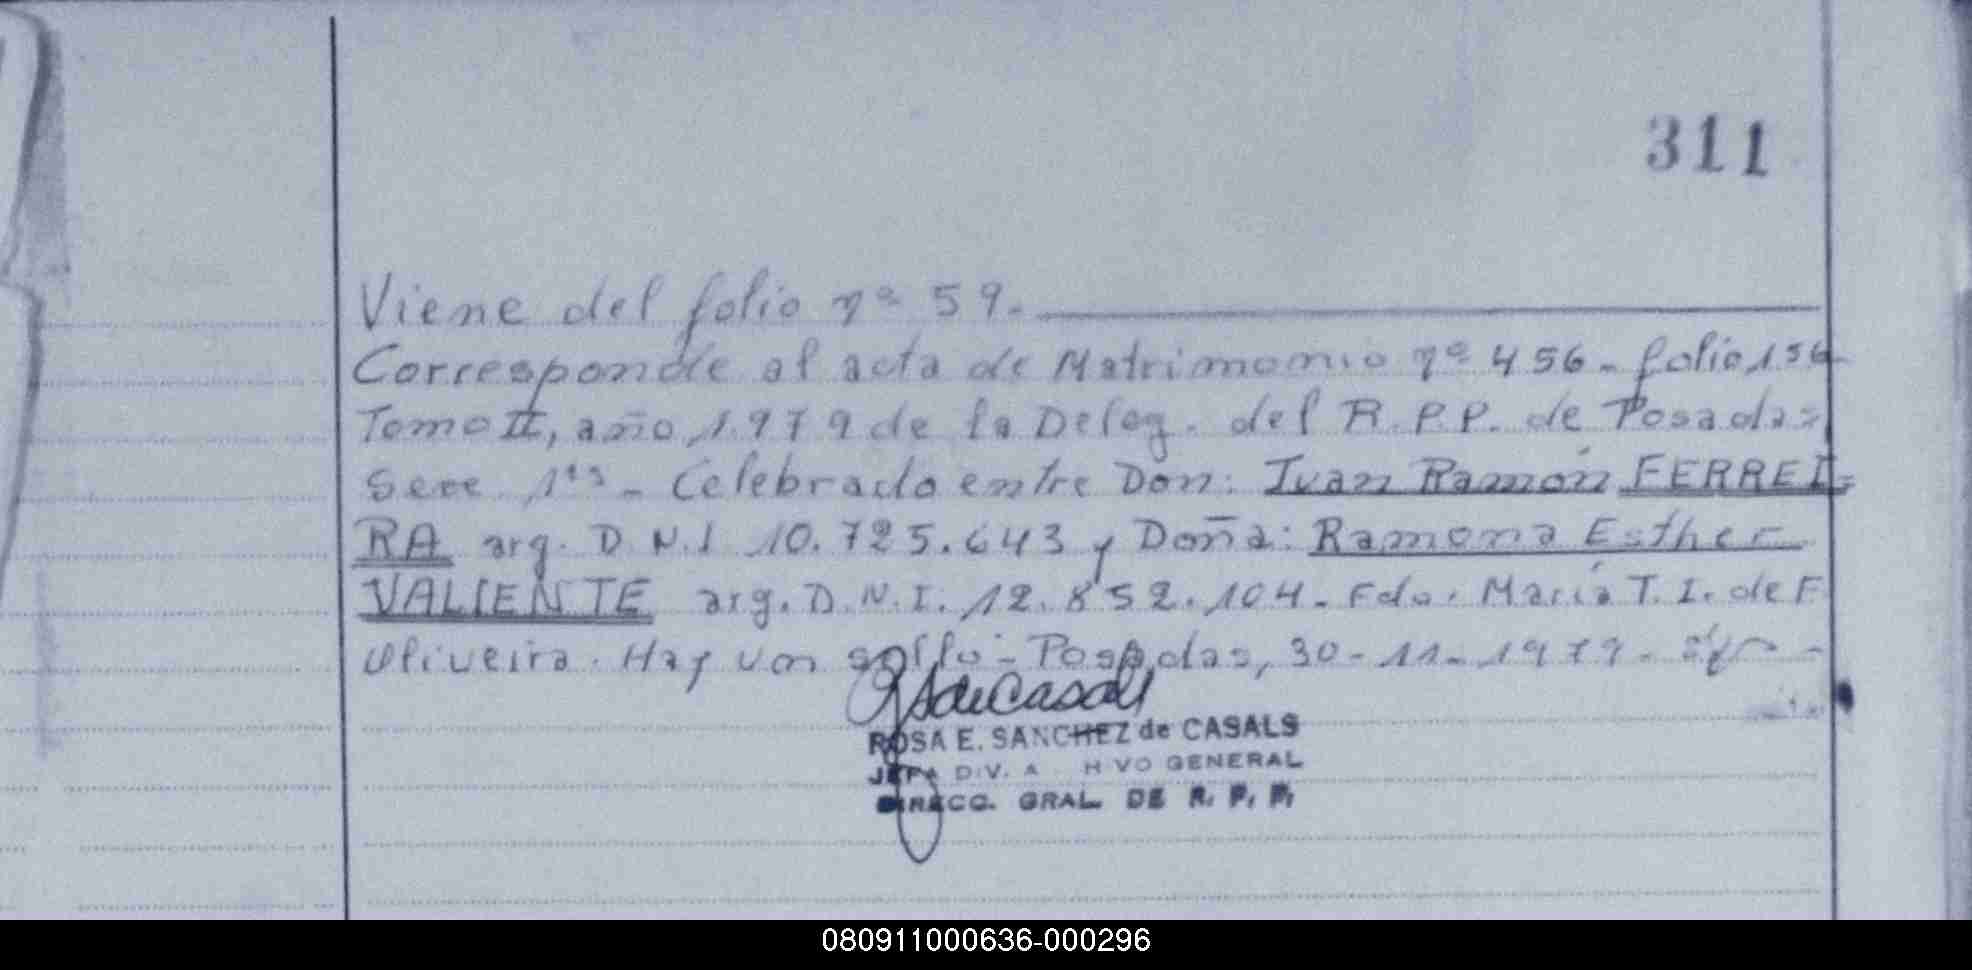 311
Viene del folio nº 59.-
Corresponde al acta de Matrimonio nº 456- folio 156
Tomo II, año 1979 de la Deleg. del R.P.P. de Posadas,
Secc. 1ra - Celebrado entre Don: Juan Ramón FERREI-
RA arg. D.N.I 10.725.643 y Doña: Ramona Esther
VALIENTE arg. D.N.I. 12.852.104. Fdo. María T. I. de F.
Oliveira. Hay un sello.- Posadas, 30-11-1979.
ROSA E. SANCHEZ de CASALS
JEFA DIV. A HIVO GENERAL
DIRECC. GRAL. DE R. P. P.
080911000636-000296